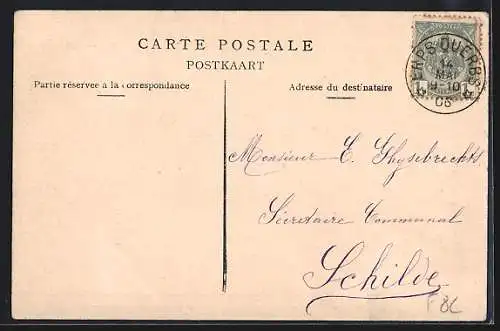 CARTE POSTALE
POSTKAART
Partie réservée à la correspondance
Adresse du destinataire
ERPS-QUERBS
14
MAI
9-10
05
Monsieur E. Ghysebrechts
Secrétaire Communal
Schilde